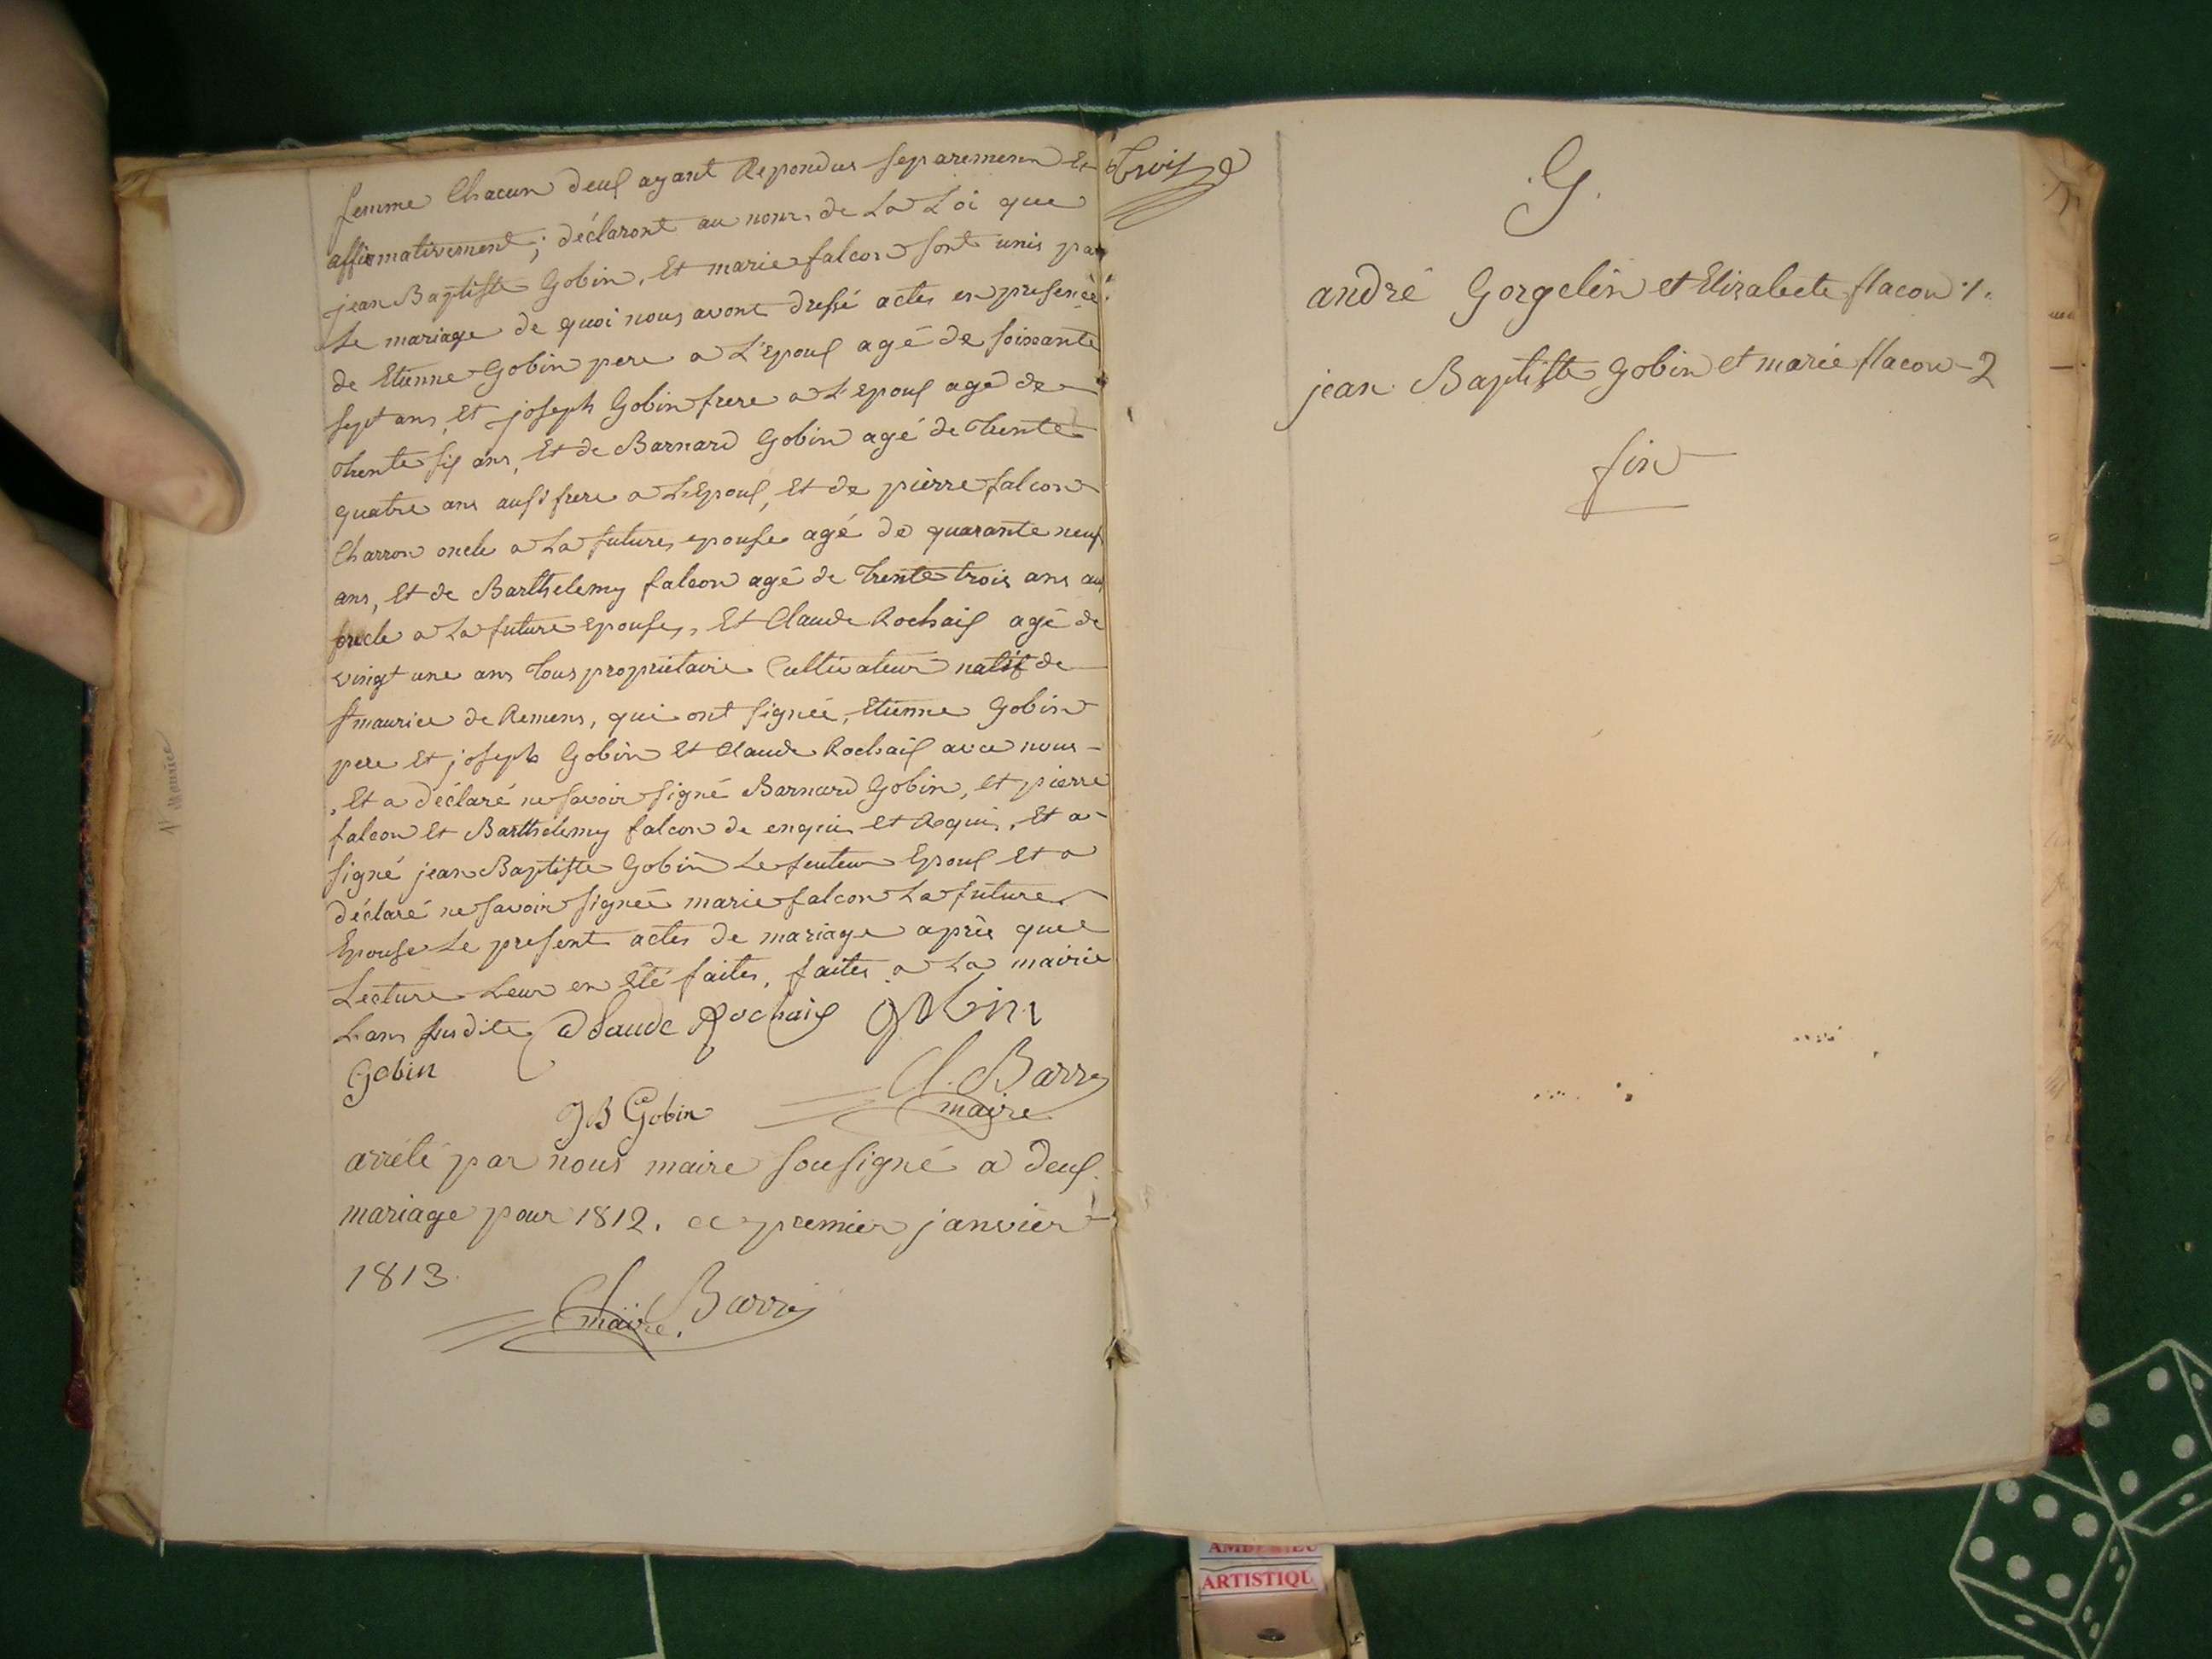 femme Chacun deux ayant Repondus separemenn Et
affirmativement; déclaront au nom de La Loi que
jean Baptiste Gobin, Et marie falcon sont unis par
Le mariage de quoi nous avont dressé actes en presence
de Etienne Gobin pere a L'Epoux agé de soixante
sept ans, Et joseph Gobin frere a L'Epoux agé de
Trente six ans, Et de Barnard Gobin agé de Trente
quatre ans aussi frere a L'Epoux, Et de pierre falcon
Charron oncle a La future epouse agé de quarante neuf
ans, Et de Barthelemy falcon agé de Trente trois ans au
oncle a La future Epouse, Et Claude Rochaix agé de
vingt une ans Tous propriétaire Cultivateur natif de
St maurice de Remens, qui ont signée, Etienne Gobin
pere Et joseph Gobin Et Claude Rochaix avec nous
, Et a déclaré ne savoir signé Barnard Gobin, et pierre
falcon Et Barthelemy falcon de enquis et Requis, Et a
signé jean Baptiste Gobin Le feuteur Epoux Et a
déclaré ne savoir signée marie falcon La future
Epouse Le present actes de mariage après que
Lecture Leur en Eté faites, faites a La mairie
L'ans susdite Claude Rochaix gobin
Gobin
JB Gobin
Cl. Barre
maire
arrété par nous maire sousigné a deux
mariage pour 1812. ce premier janvier
1813
Cl. Barre
maire.
St Maurice
Trois
G.
andré Gorgelin et Elizabete flacon 1.
jean Baptiste gobin et marie flacon 2
fin
ARTISTIQU